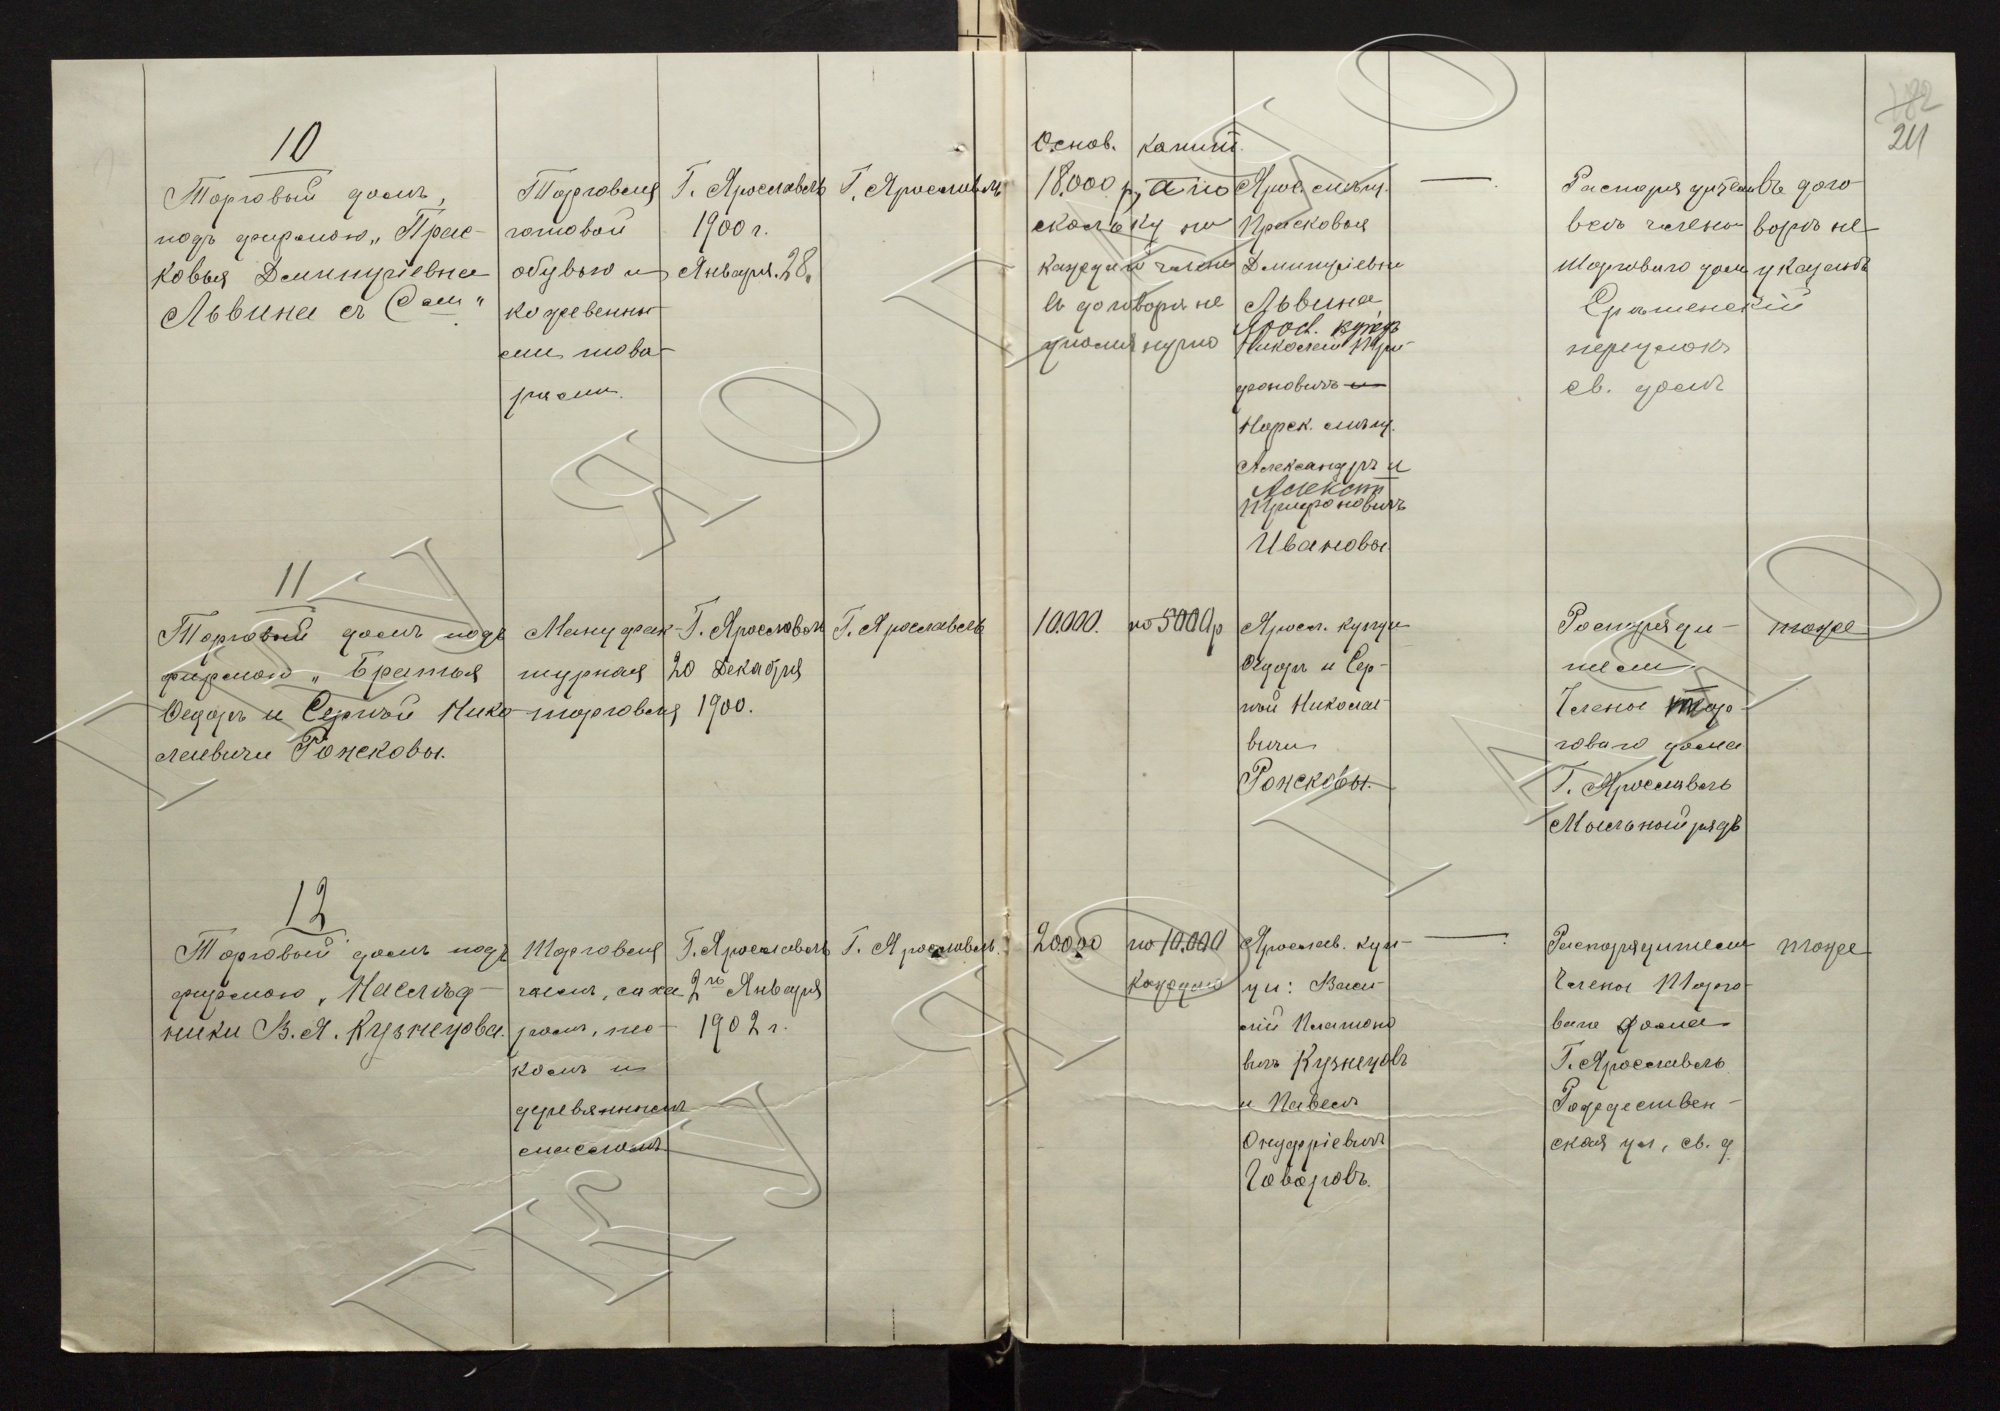 182
211
10
Торговый домъ,
подъ фирмою „Прас-
ковья Дмитріевна
Львина съ Сын.“
Торговля
готовой
обувью и
кожевенны-
ми това-
рами.
Г. Ярославль
1900 г.
Января 28.
Г. Ярославль
Основ. капит.
18.000 р, а по
скольку на
каждаго члена
въ договорѣ не
упомянуто
Яросл. мѣщ.
Прасковья
Дмитріевна
Львина
Яросл. купецъ
Николай Три-
фоновичъ и
Нарек. мѣщ.
Александръ и
Алексѣй
Трифоновичъ
Ивановы.
—
Распоря
весь члены
Торговаго дома
Срѣтенскій
переулокъ
св. домъ
Въ дого
ворѣ не
указанъ
11
Торговый домъ подъ
фирмою „Братья
Ѳедоръ и Сергѣй Нико-
лаевичи Рожковы.
Мануфак-
турная
торговля
Г. Ярославль
20 Декабря
1900.
Г. Ярославль
10.000.
по 5000 р
Яросл. купцы
Ѳедоръ и Сер-
гѣй Николае-
вичи
Рожковы.
Распоряди-
тели
Члены Тор-
говаго дома
Г. Ярославль
Мыльный рядъ
тоже
12
Торговый домъ подъ
фирмою „Наслѣд-
ники В. Я. Кузнецова.
Торговля
чаемъ, саха
ромъ, пес-
комъ и
деревяннымъ
масломъ
Г. Ярославль
2го Января
1902 г.
Г. Ярославль.
20000
по 10.000
каждый
Ярослав. куп-
цы: Васи-
лій Платоно
вичъ Кузнецовъ
и Павелъ
Онуфріевичъ
Говоровъ.
—
Распорядители
Члены Торго-
ваго дома
Г. Ярославль
Рождествен-
ская ул, св. д.
тоже